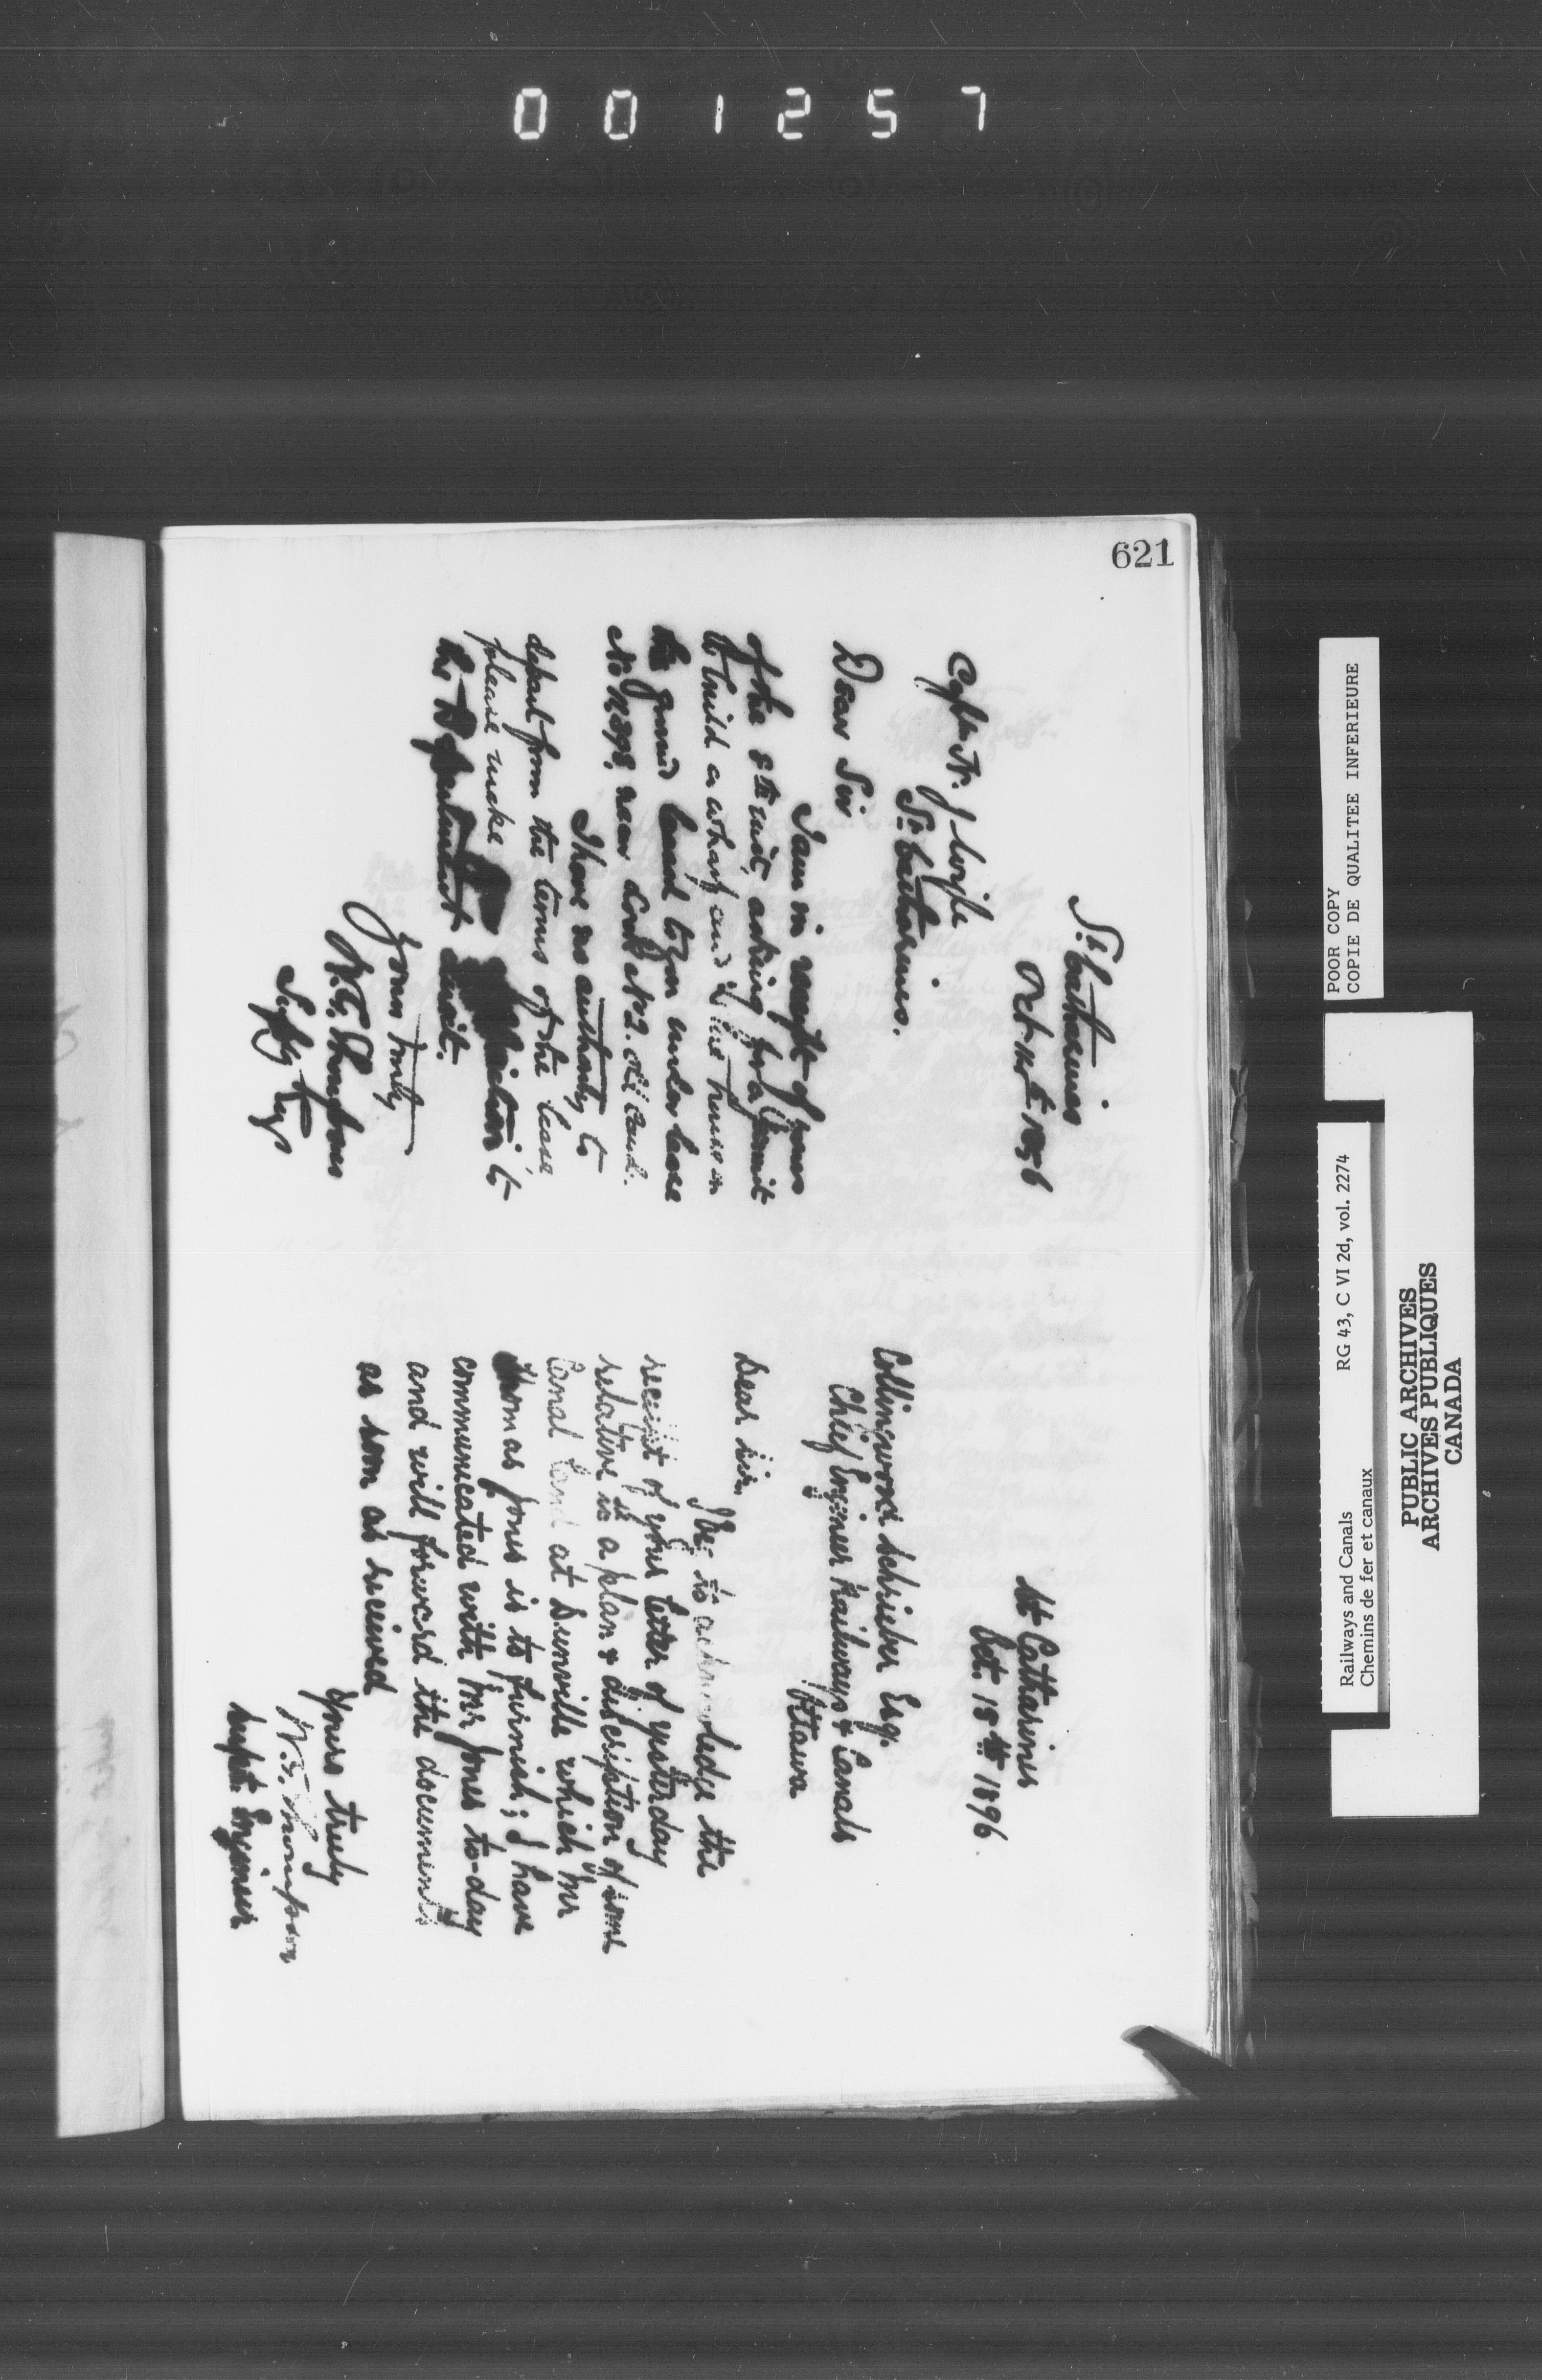 001257
621
St Catharines
Oct 14th 1896
Capt. W. J
St Catharines.
Dear Sir
I am in receipt of yours
of the 8th inst, asking for a permit
to build a wharf and house on
the ground leased to you under lease
No near Lock No 2. old Canal.
I have no authority to
depart from the terms of the lease,
please make application to
the Department direct.
Yours truly
W.G. Thompson
Suptg Engr
St Catharines
Oct. 15th 1896
Collingwood Schrieber Esq.
Chief Engineer Railways & Canals
Ottawa
Dear Sir,
I beg to acknowledge the
receipt of your letter of yesterday
relative to a plan & discription of some
Canal Land at Dunville which Mr
Thomas Jones is to furnish; I have
communicated with Mr Jones to-day
and will forward the documents
as soon as received
Yours truly
W.G. Thompson
Supt. Engineer
POOR COPY
COPIE DE QUALITEE INFERIEURE
Railways and Canals RG 43, C VI 2d, vol. 2274
Chemins de fer et canaux
PUBLIC ARCHIVES
ARCHIVES PUBLIQUES
CANADA